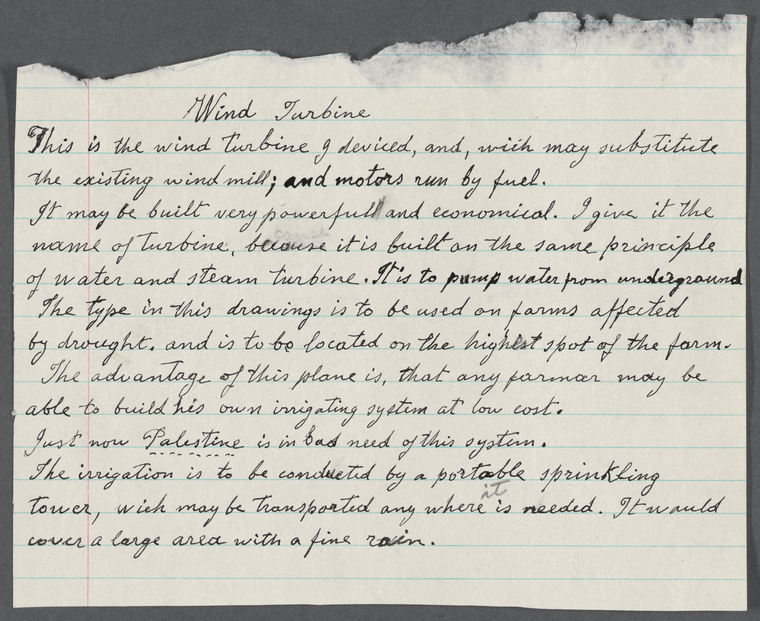 Wind Turbine
This is the wind turbine I deviced, and, wich may substitute
the existing wind mill; and motors run by fuel.
It may be built very powerfull and economical. I give it the
name of Turbine, because it is built on the same principle
of water and steam turbine. It is to pump water from underground
The type in this drawings is to be used on farms affected
by drought. and is to be located on the highest spot of the farm.
The advantage of this plane is, that any farmar may be
able to build his own irrigating system at low cost.
Just now Palestine is in bad need of this system.
The irrigation is to be conducted by a portable sprinkling
it
tower, wich may be transported any where is needed. It would
cover a large area with a fine rain.